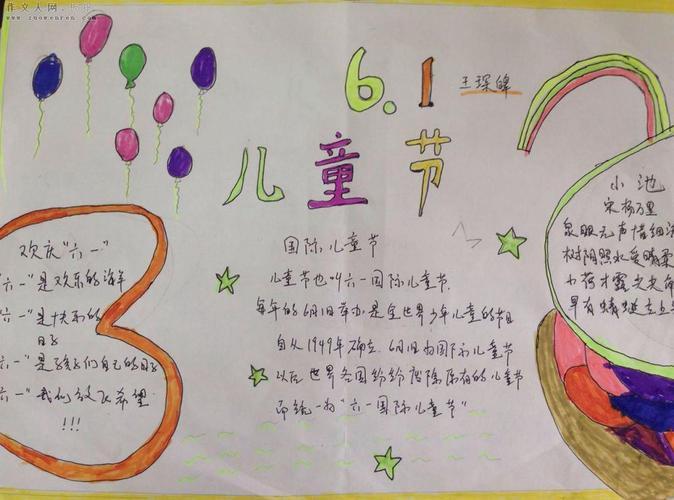 作文人网
www.zuowenren.com
6.1
儿童节
欢庆"六一"
六一"是欢乐的海洋
六一"是快乐的
日子
六一"是孩子们自己的日子
六一"我们放飞希望
!!!
国际儿童节
儿童节也叫六一国际儿童节,
每年的6月1日举办是全世界少年儿童的节日
自从1949年确立,6月1日为国际儿童节
以后世界各国纷纷废除原有的儿童节
而统一为"六一国际儿童节"
小池
宋杨万里
泉眼无声惜细流
树阴照水爱晴柔
小荷才露尖尖角
早有蜻蜓立上头